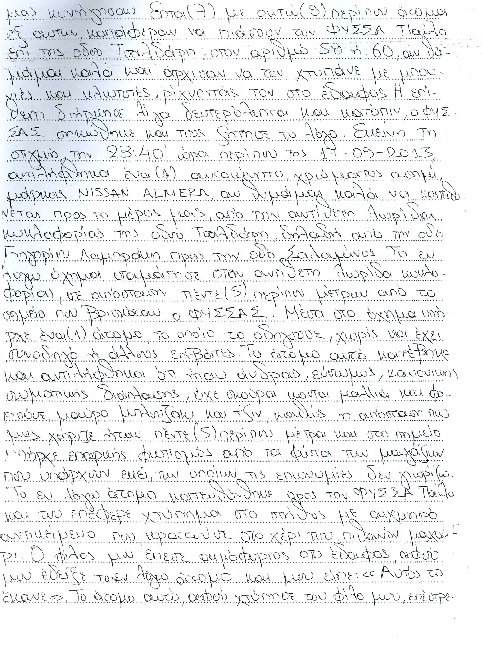 μας κυνήγησαν. Επτά (7) με οκτώ (8) περίπου άτομα
εξ αυτών κατάφεραν να πιάσουν τον ΦΥΣΣΑ Παύλο
επί της οδού Τσαλδάρη στον αριθμό 58 ή 60, αν θυ-
μάμαι καλά και άρχισαν να τον χτυπάνε με μπου-
νιές και κλωτσιές, ρίχνοντάς τον στο έδαφος. Η επί-
θεση διήρκησε λίγα δευτερόλεπτα και κατόπιν ο ΦΥΣ-
ΣΑΣ σηκώθηκε και τους ζήτησε το λόγο. Εκείνη τη
στιγμή, την 23:40 ώρα περίπου της 17-09-2013
αντιλήφθηκα ένα (1) αυτοκίνητο, χρώματος ασημί,
μάρκας NISSAN ALMERA, αν θυμάμαι καλά να κατευθύ-
νεται προς το μέρος μας, από την αντίθετη λωρίδα
κυκλοφορίας της οδού Τσαλδάρη, δηλαδή από την οδό
Γρηγορίου Λαμπράκη προς την οδό Σαλαμίνος. Το εν
λόγω όχημα σταμάτησε στην αντίθετη λωρίδα κυκλο-
φορίας, σε απόσταση πέντε (5) περίπου μέτρων από το
σημείο που βρισκόταν ο ΦΥΣΣΑΣ. Μέσα στο όχημα υπή-
ρχε ένα (1) άτομο, το οποίο το οδηγούσε, χωρίς να έχει
συνοδηγό ή άλλους επιβάτες. Το άτομο αυτό κατέβηκε
και αντιλήφθηκα ότι ήταν άνδρας, εύσωμος, κανονικής
σωματικής διάπλασης, είχε σκούρα κοντά μαλλιά και φο-
ρούσε μαύρο μπλουζάκι και τζιν, καθώς η απόσταση που
μας χώριζε ήταν πέντε (5) περίπου μέτρα και στο σημείο
υπήρχε επαρκής φωτισμός από τα φώτα των μαγαζιών
που υπάρχουν εκεί, των οποίων τις επωνυμίες δεν γνωρίζω.
Το εν λόγω άτομο κατευθύνθηκε προς τον ΦΥΣΣΑ Παύλο
και του επέφερε χτύπημα στο στήθος με αιχμηρό
αντικείμενο που κρατούσε στο χέρι του, πιθανόν μαχαί-
ρι. Ο φίλος μου έπεσε αιμόφυρτος στο έδαφος, αφού
μου έδειξε το εν λόγω άτομο και μου είπε: << Αυτός το
έκανε >>. Το άτομο αυτό, αφού χτύπησε τον φίλο μου, επέστρε-